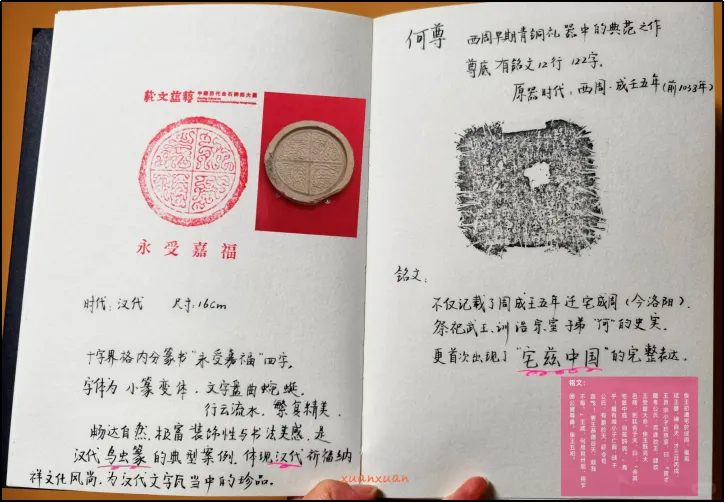 中國歷代金石碑拓大展
永受嘉福
时代：汉代 尺寸：16cm
十字界格内分篆书“永受嘉福”四字。
字体为小篆变体，文字盘曲蜿蜒，
行云流水，繁复精美。
畅达自然、极富装饰性与书法美感，是
汉代鸟虫篆的典型案例，体现汉代祈福纳
祥文化风尚，为汉代文字瓦当中的珍品。
xuanxuan
何尊 西周早期青铜礼器中的典范之作
尊底有铭文12行 122字。
原器时代：西周·成王五年（前1033年）
铭文：
不仅记载了周成王五年迁宅成周（今洛阳）、
祭祀武王、训诰宗室子弟“何”的史实，
更首次出现了“宅兹中国”的完整表达。
铭文：